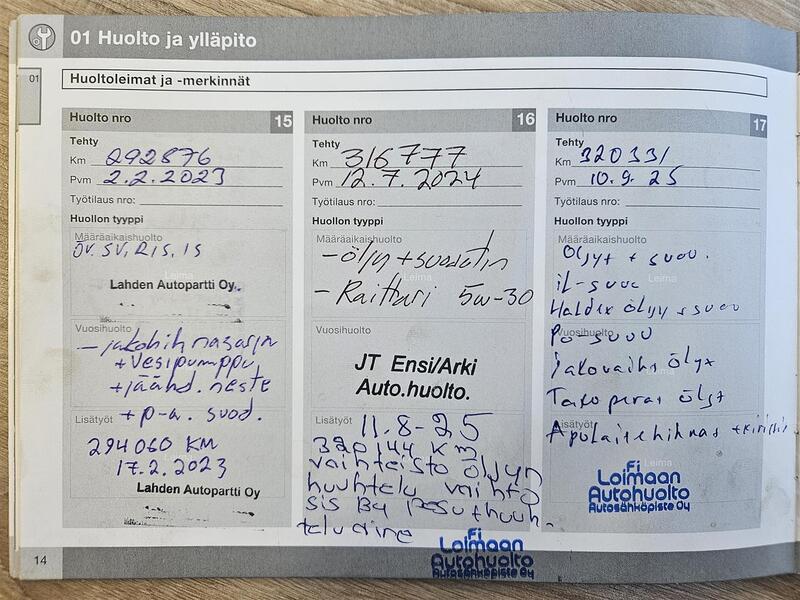 01 Huolto ja ylläpito
01
Huoltoleimat ja -merkinnät
Huolto nro 15
Tehty
Km 292876
Pvm 2.2.2023
Työtilaus nro:
Huollon tyyppi
Määräaikaishuolto
ÖV. SV, RIS, IS
Leima
Lahden Autopartti Oy..
Vuosihuolto
- jakohihnasarja
+ vesipumppu
+ jäähd. neste
+ p-a. suod.
Lisätyöt
294060 KM
17.2.2023
Lahden Autopartti Oy
Huolto nro 16
Tehty
Km 316777
Pvm 12.7.2024
Työtilaus nro:
Huollon tyyppi
Määräaikaishuolto
- öljy + suodatin
Leima
- Raittari 5w-30
Vuosihuolto
JT Ensi/Arki
Auto.huolto.
Lisätyöt
11.8-25
320144 KM
vaihteisto öljyn
huuhtelu vaihto
sis Bg pesu+huuh-
teluaine
Fi
Loimaan
Autohuolto
Autosähköpiste Oy
Huolto nro 17
Tehty
Km 320331
Pvm 10.9.25
Työtilaus nro:
Huollon tyyppi
Määräaikaishuolto
Öljyt + suod.
il-suod
Leima
Haldex öljy + suod
Vuosihuolto
Po-suod
jakovaihd öljy
Leima
Taka perän öljyt
Lisätyöt
Apulaitehihnas + kiristin
Leima
Fi
Loimaan
Autohuolto
Autosähköpiste Oy
14